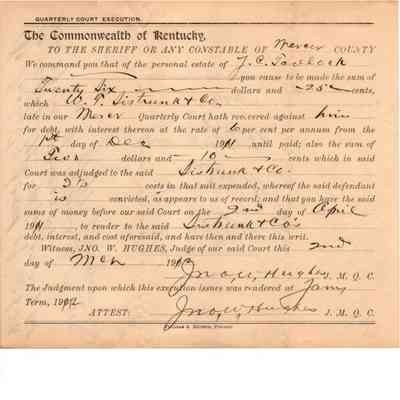 QUARTERLY COURT EXECUTION.
The Commonwealth of Kentucky,
TO THE SHERIFF OR ANY CONSTABLE OF Mercer COUNTY
We command you that of the personal estate of J. C.
you cause to be made the sum of
Twenty Six dollars and 25 cents,
which W. T. Sistrunk & Co.
late in our Mercer Quarterly Court hath recovered against him
for debt, with interest thereon at the rate of 6 per cent per annum from the
1st day of Dec 1911 until paid; also the sum of
Four dollars and 10 cents which in said
Court was adjudged to the said Sistrunk & Co.
for costs in that suit expended, whereof the said defendant
is convicted, as appears to us of record; and that you have the said
sums of money before our said Court on the 2nd day of April
191 , to render to the said Sistrunk & Co's
debt, interest, and cost aforesaid, and have then and there this writ.
Witness, JNO. W. HUGHES, Judge of our said Court this 2nd
day of Mch 1912
Jno. W. Hughes, J. M. Q. C.
The Judgment upon which this execution issues was rendered at Jany
Term, 1912
ATTEST: Jno. W. Hughes J. M. Q. C.